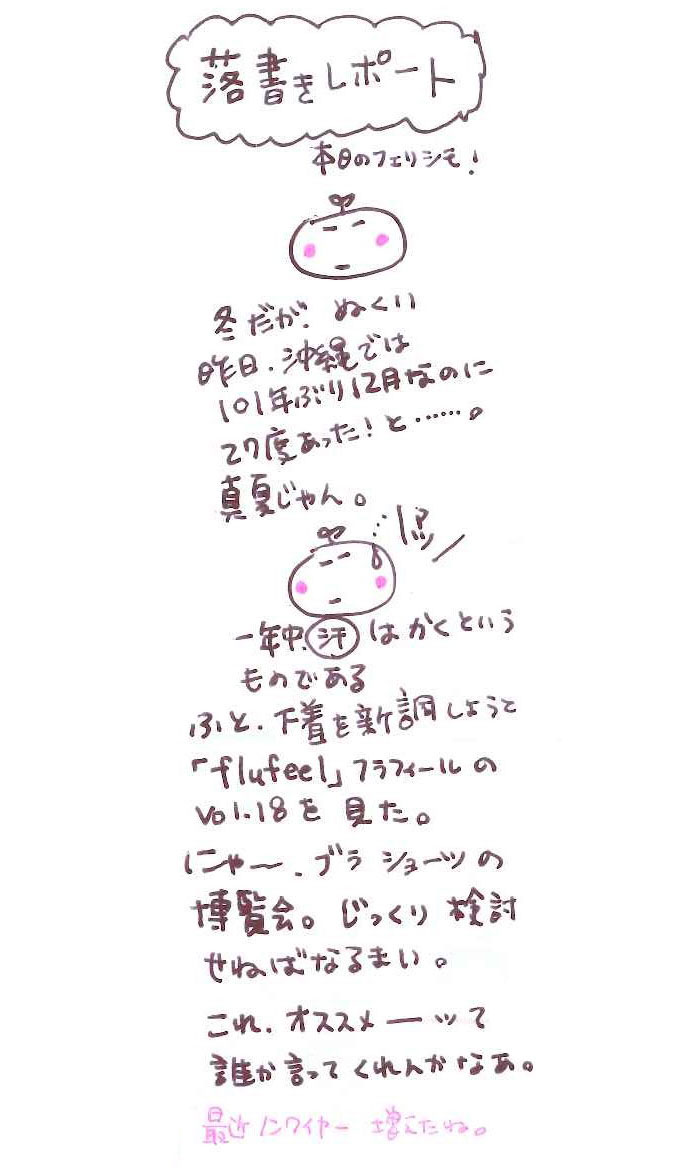 落書きレポート
本日のフェリシモ！
冬だが、ぬくい
昨日、沖縄では
101年ぶり12月なのに
27度あった！と……。
真夏じゃん。
一年中、汗はかくという
ものである
ふと、下着を新調しようと
「flufeel」フラフィールの
Vol.18を見た。
にゃ〜、ブラショーツの
博覧会。じっくり検討
せねばなるまい。
これ、オススメーッて
誰か言ってくれんかなあ。
最近ノンワイヤー増えたね。